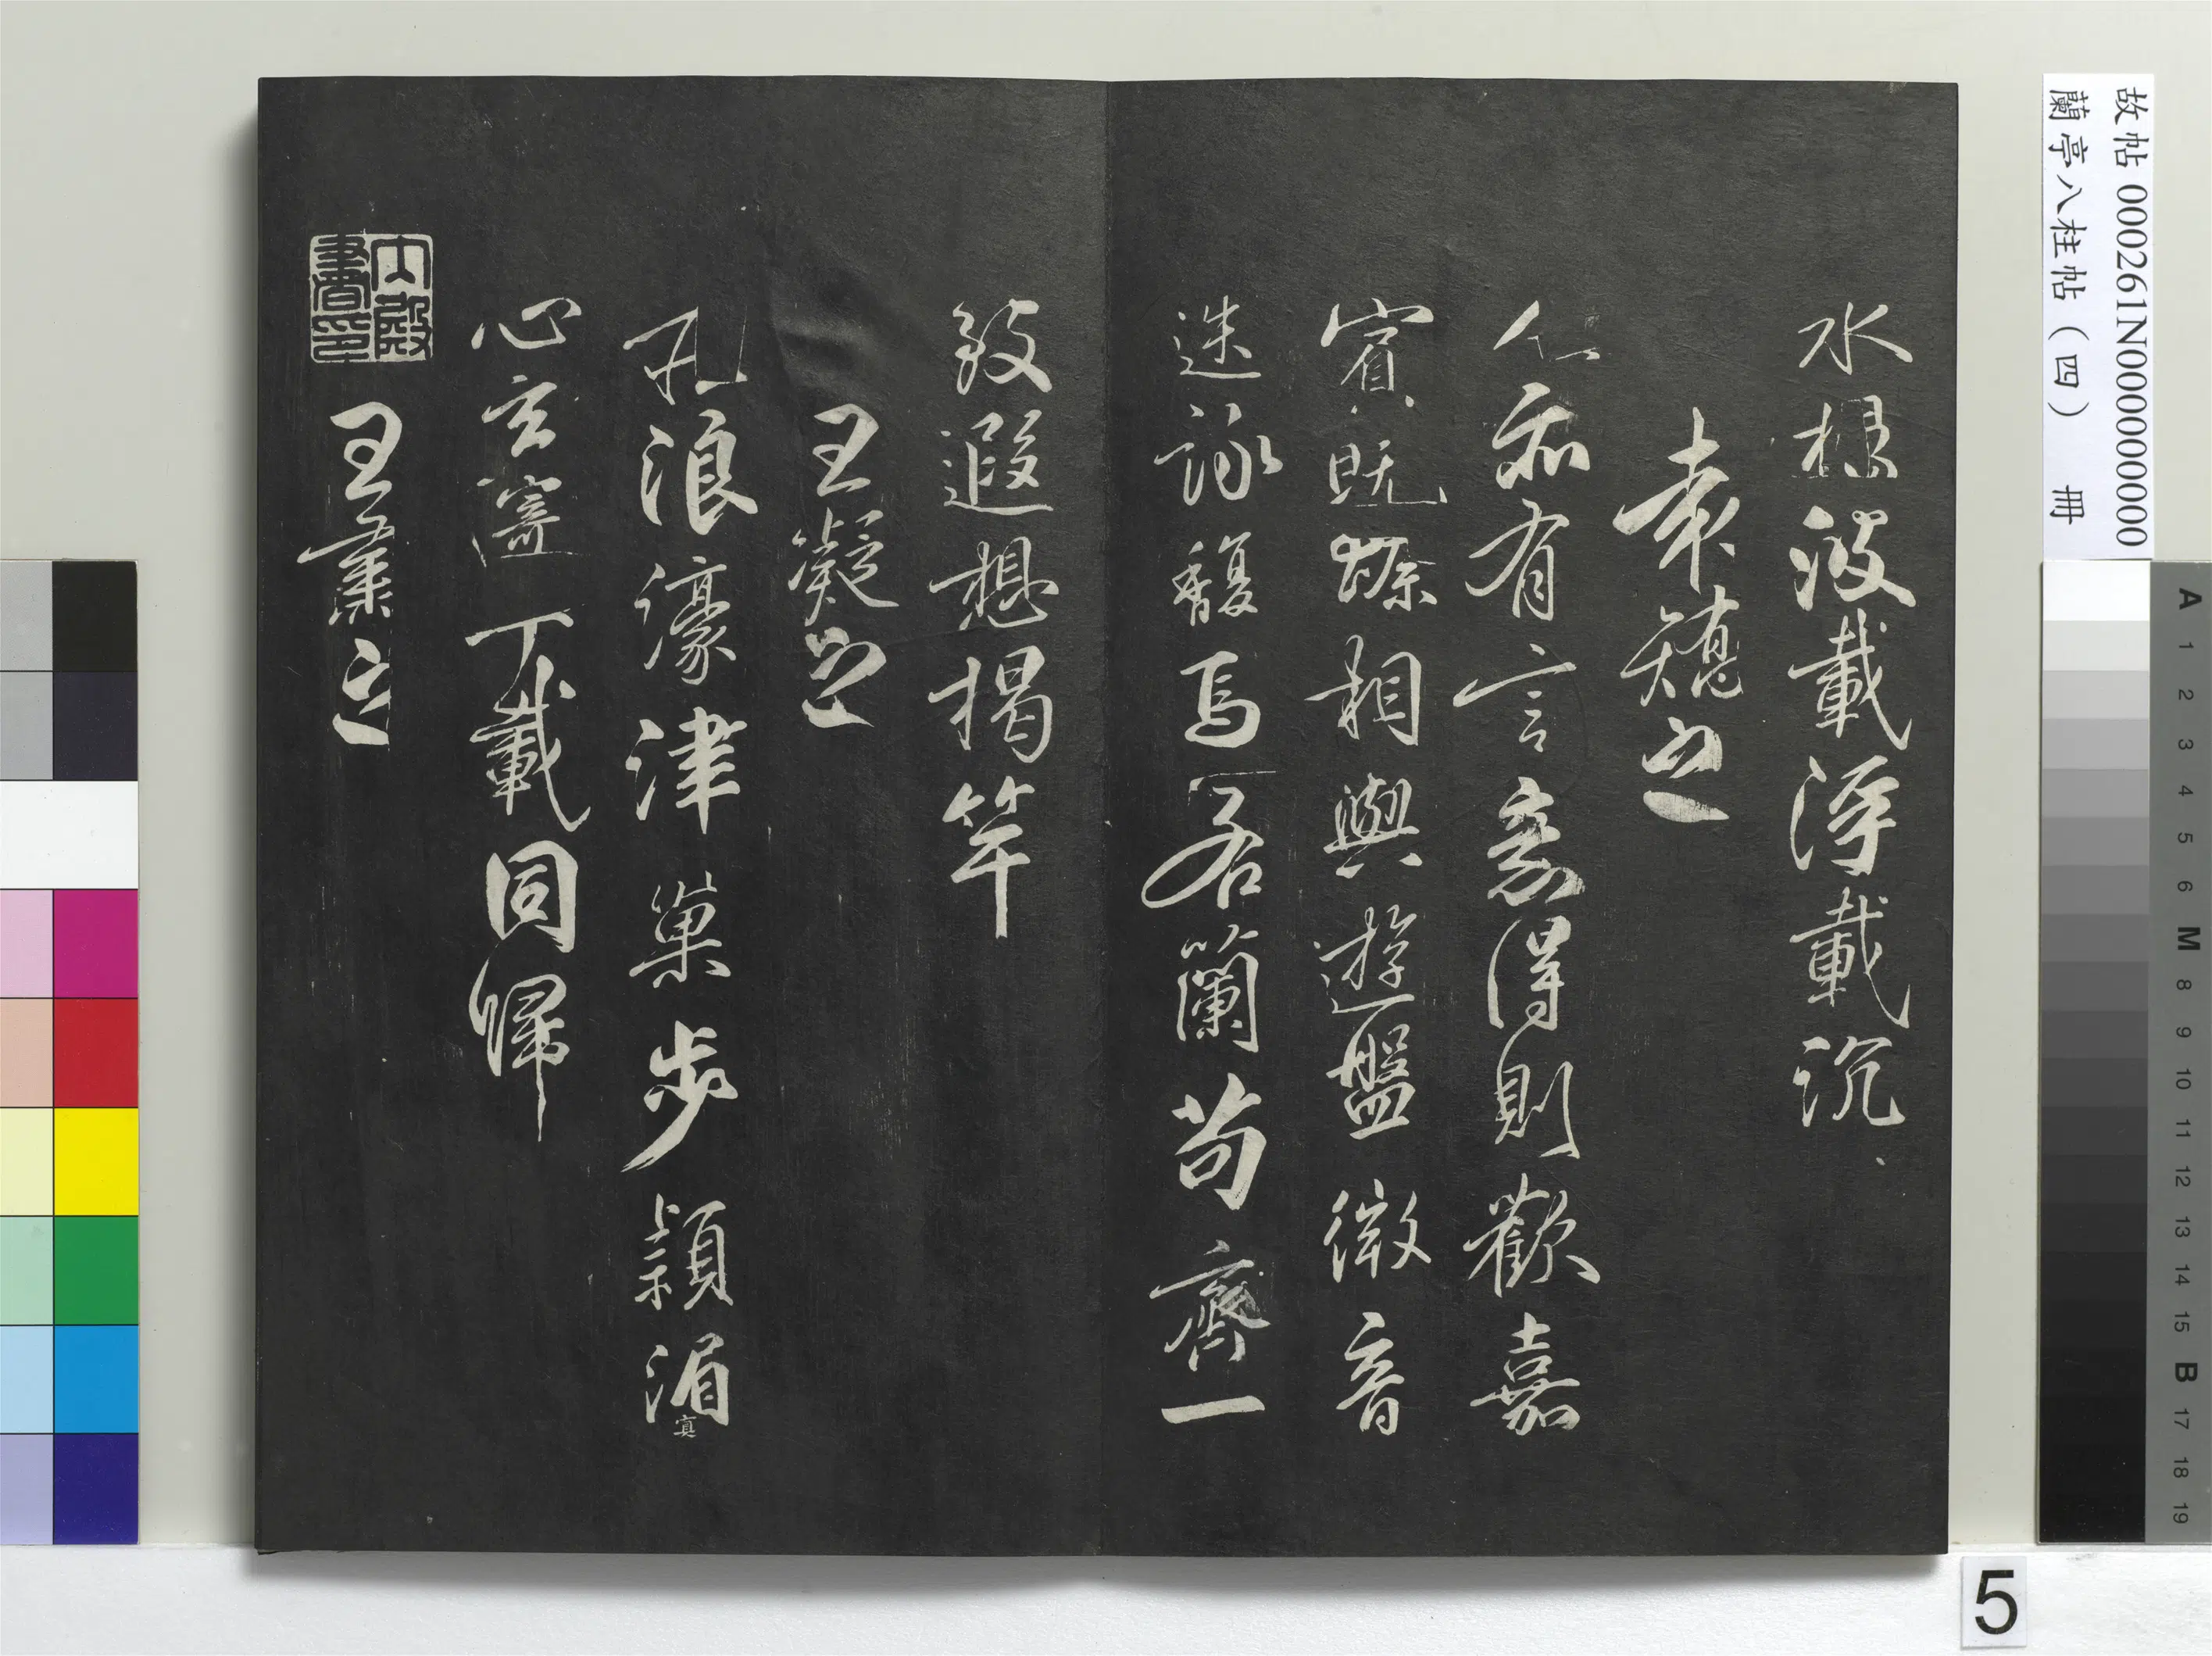 水想波載浮載沉
袁穂之
人亦有言意得則歡嘉
賓既臻相與遊盤微音
迭詠馥焉若蘭苟齊一
致遐想揭竿
王凝之
孔浪濠津巢步潁湄
寘
心玄寄丁載同歸
王肅之
內殿書印
故帖 000261N000000000
蘭亭八柱帖（四） 冊
A 1 2 3 4 5 6 M 8 9 10 11 12 13 14 15 B 17 18 19
5